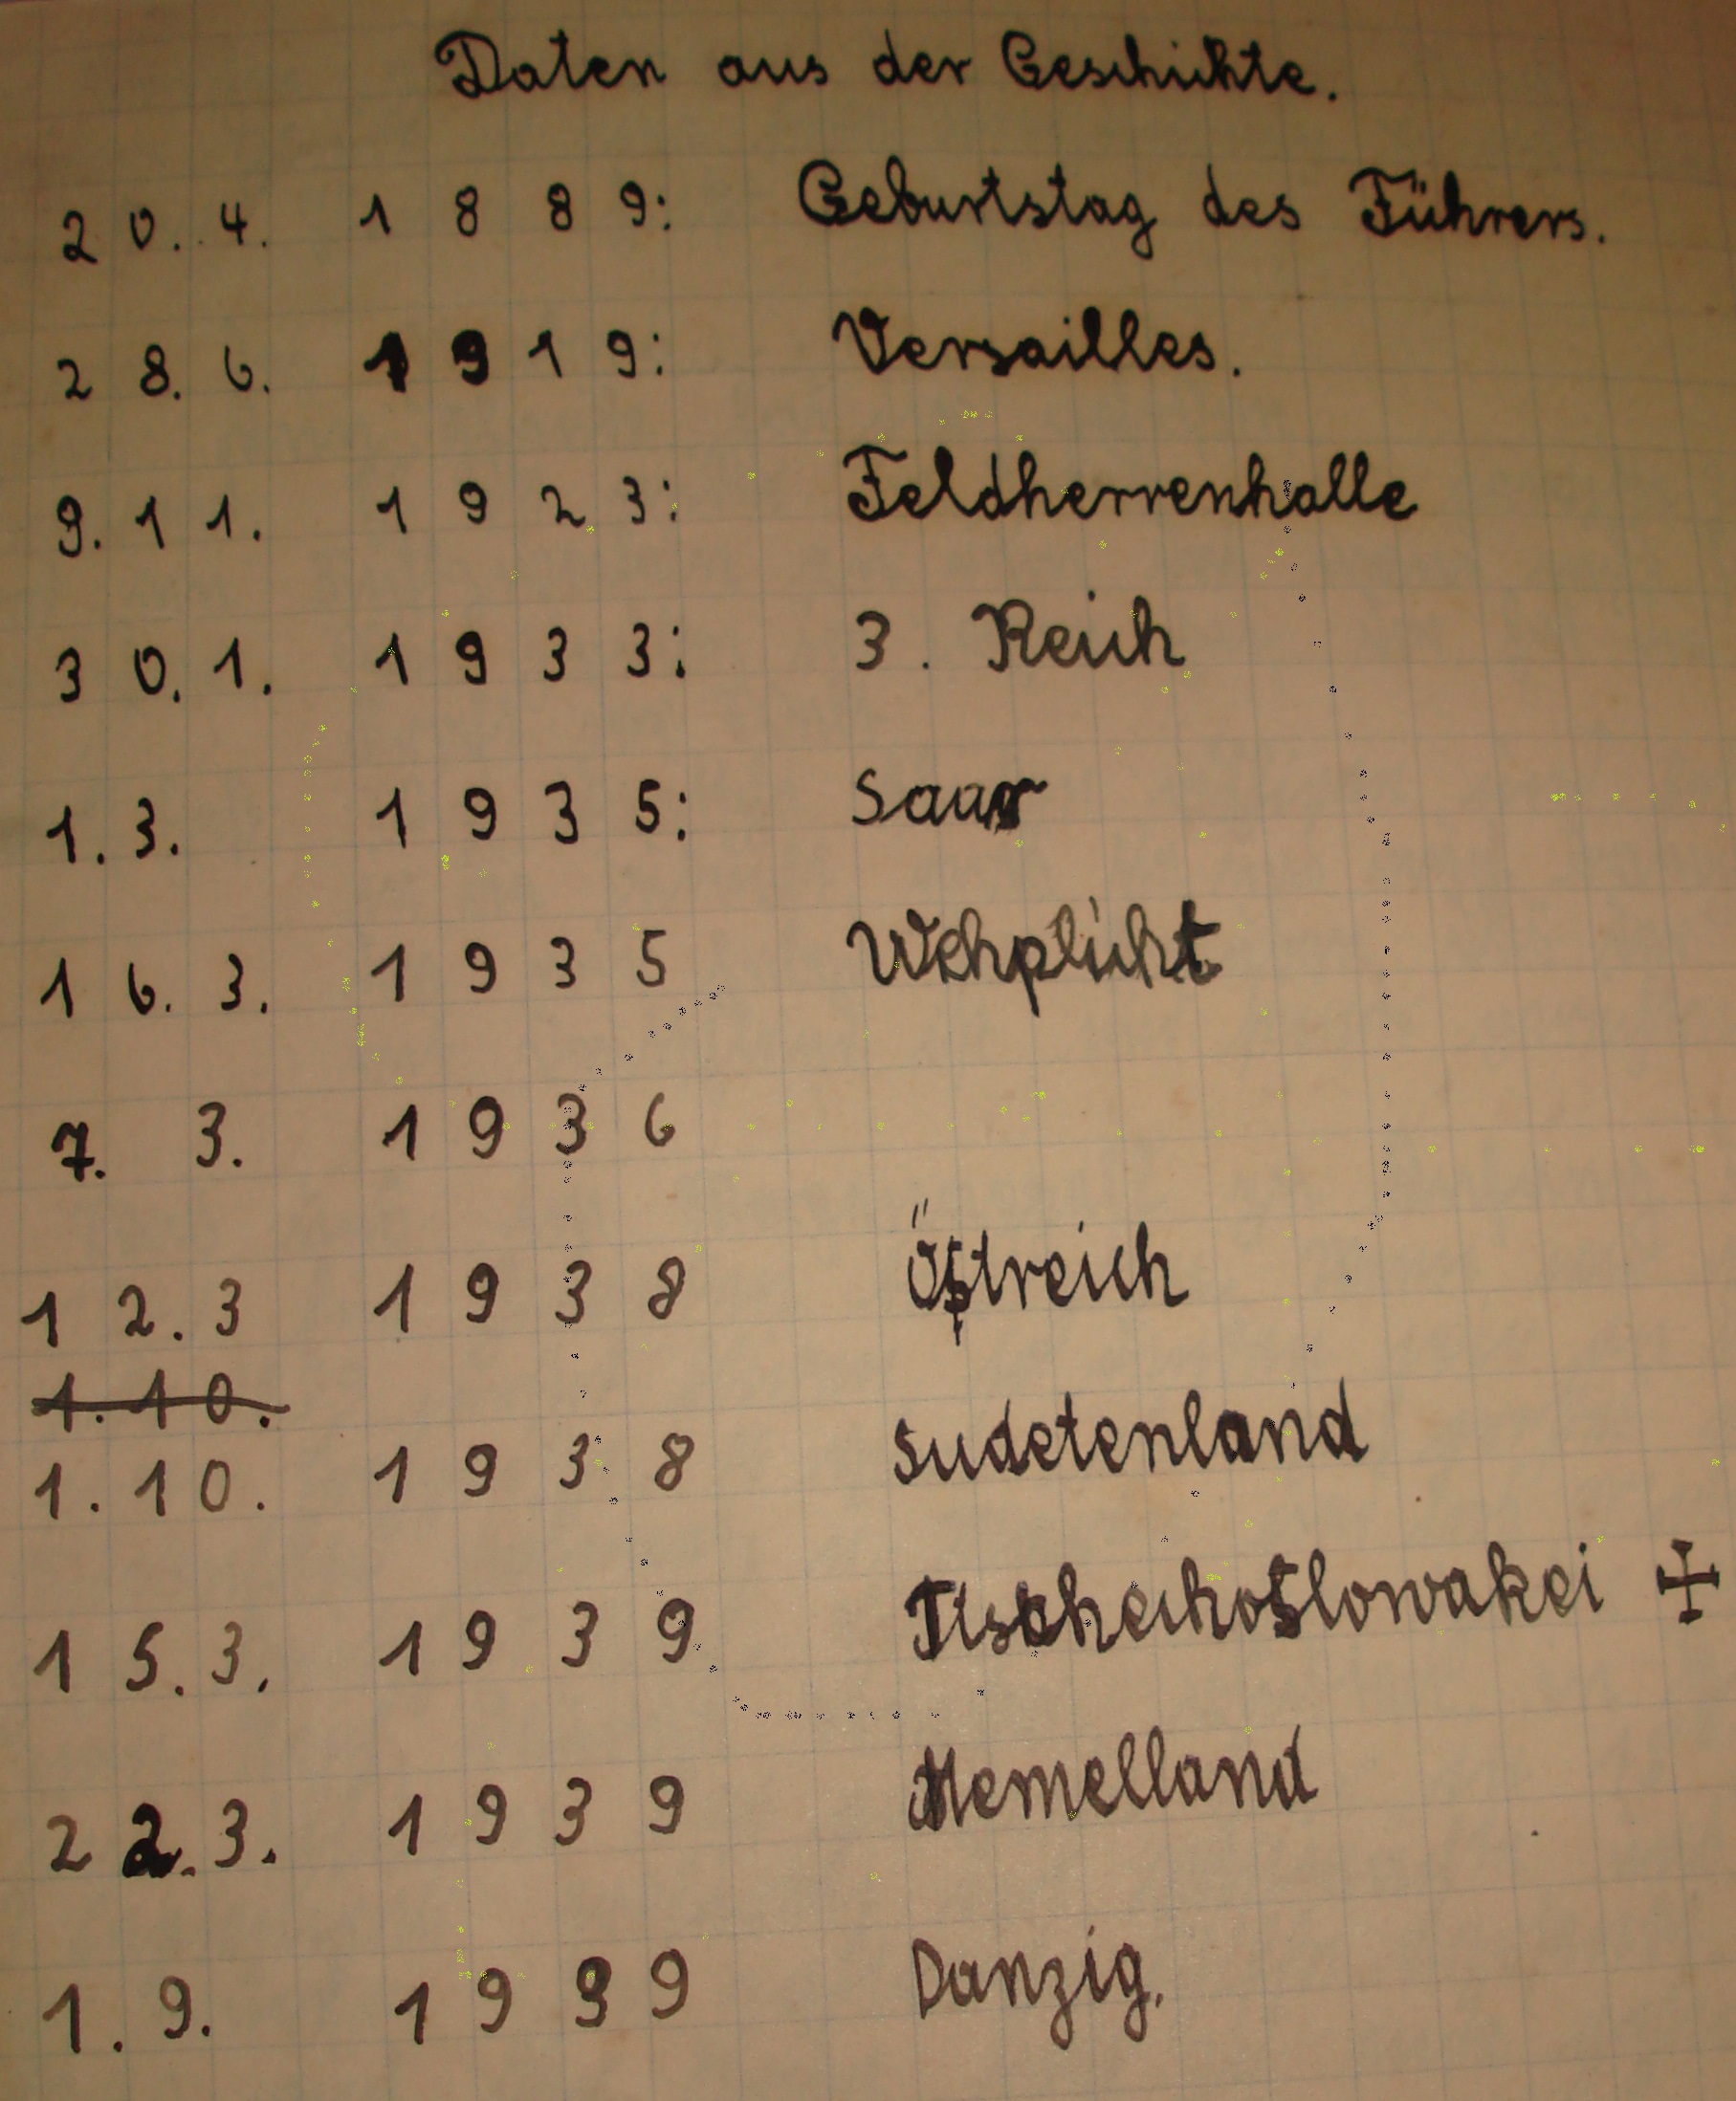 Daten aus der Geschichte.
20.4. 1889: Geburtstag des Führers.
28.6. 1919: Versailles.
9.11. 1923: Feldherrenhalle
30.1. 1933: 3. Reich
1.3. 1935: Saar
16.3. 1935 Wehplicht
7. 3. 1936
12.3 1938 Östreich
1.10.
1.10. 1938 Sudetenland
15.3. 1939 Tschechoslowakei
22.3. 1939 Memelland
1.9. 1939 Danzig.